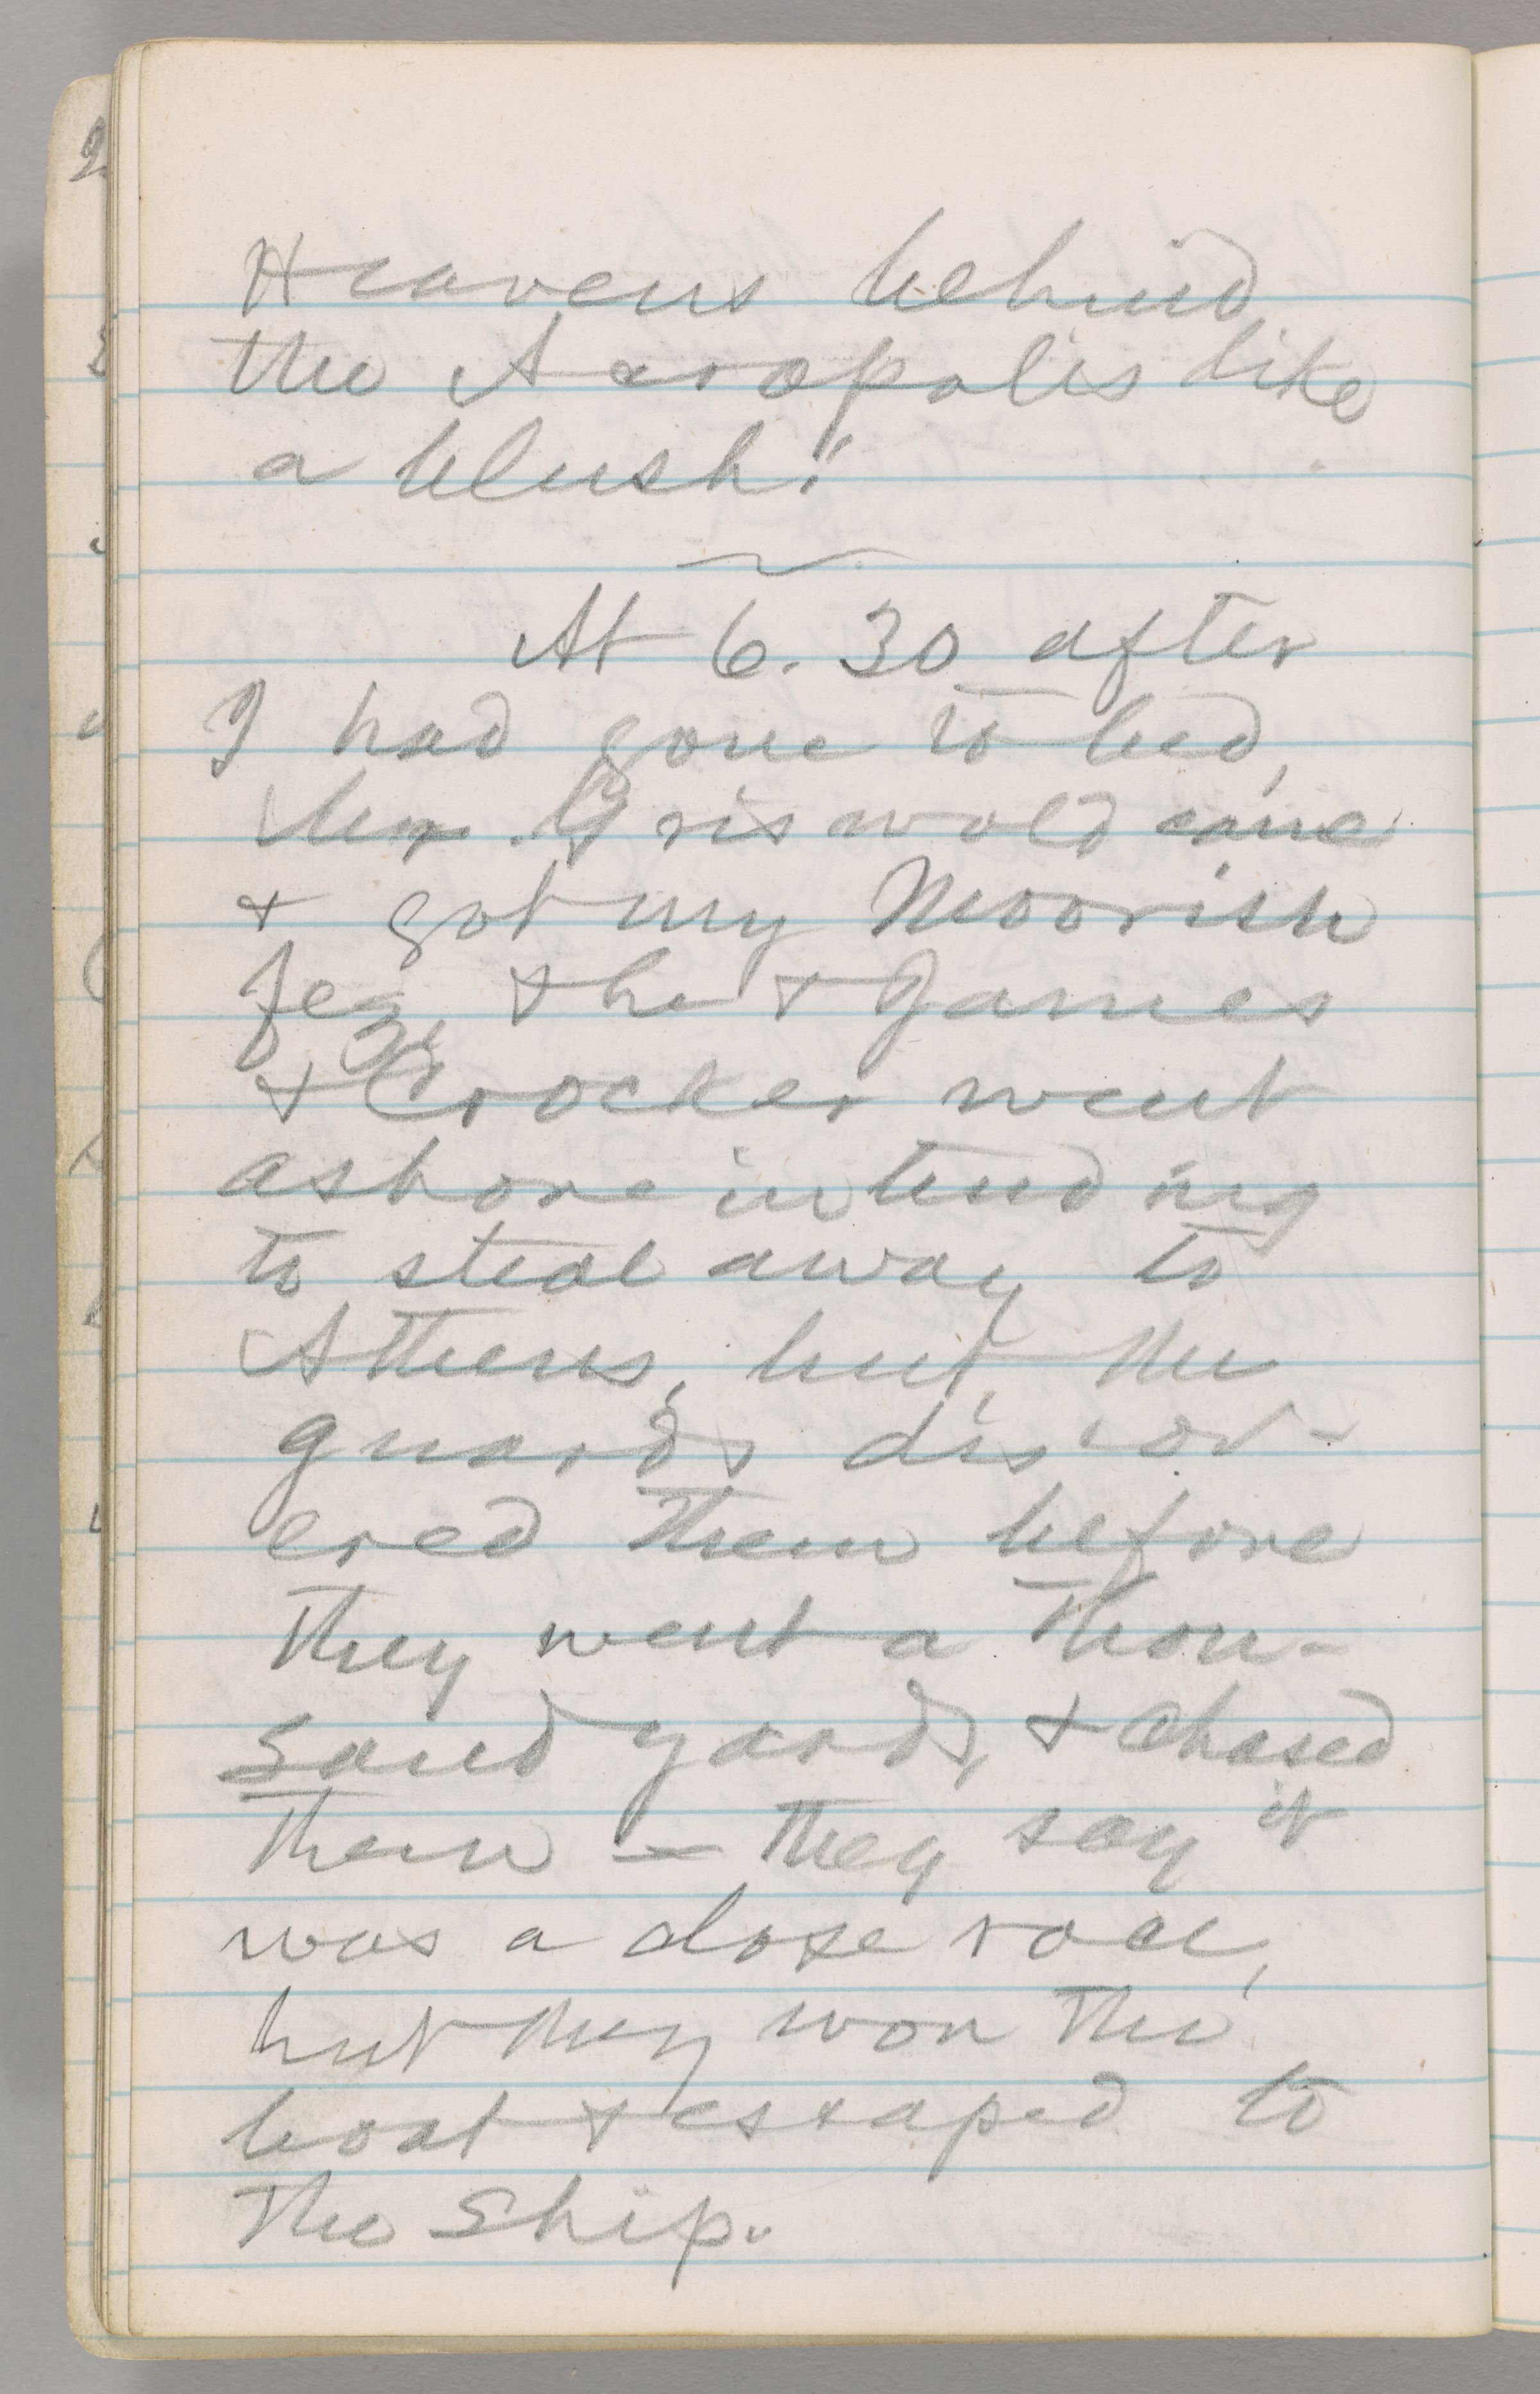 Heavens behind
the Acropolis like
a blush!"
At 6.30 after
I had gone to bed,
Mr. Griswold came
& got my Moorish
fez, & he & James
& Crocker went
ashore intending
to steal away to
Athens, but the
guards discov-
ered them before
they went a thou-
sand yards, & chased
them — they say it
was a close race,
but they won the
boat & escaped to
the Ship.